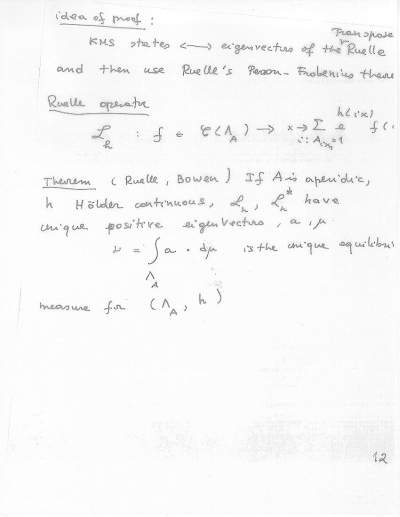 idea of proof :
Transpose
KMS states ⟷ eigenvectors of the Ruelle
and then use Ruelle's Peron-Frobenius theore
Ruelle operator
ℒ_h : f ∈ 𝒞(Λ_A) → x → Σ_{i: A_{ix_1}=1} e^{h(ix)} f(i
Theorem ( Ruelle, Bowen ) If A is aperiodic,
h Hölder continuous, ℒ_h, ℒ_h^* have
unique positive eigenvectors, a, μ
ν = ∫_{Λ_A} a · dμ is the unique equilibri
measure for (Λ_A, h)
12